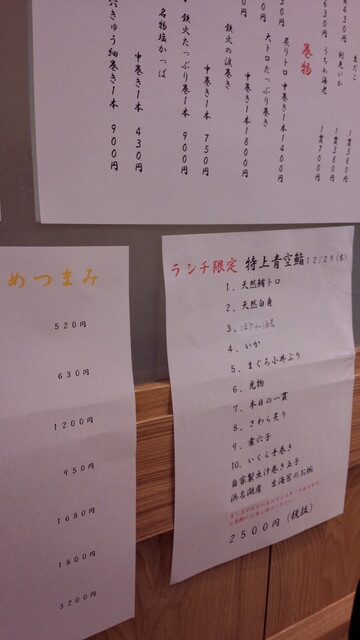 生だこ
1貫380円
剣先いか
1貫380円
うちわ海老
1貫700円
巻物
炙りトロ 中巻き1本1400円
大トロたっぷり巻き
中巻き1本1800円
鉄火の波巻き
中巻き1本 750円
鉄火たっぷり巻1本 900円
名物塩かっぱ
中巻き1本 430円
穴きゅう細巻き1本 900円
めつまみ
520円
630円
1200円
950円
1680円
1800円
3200円
ランチ限定 特上青空鮨 12/29(木)
1、天然鮪トロ
2、天然白身
3、ぼたん海老
4、いか
5、まぐろ小丼ぶり
6、光物
7、本日の一貫
8、さわら炙り
9、煮穴子
10、いくら手巻き
自家製出汁巻き玉子
浜名湖産 生海苔のお椀
2500円(税抜)